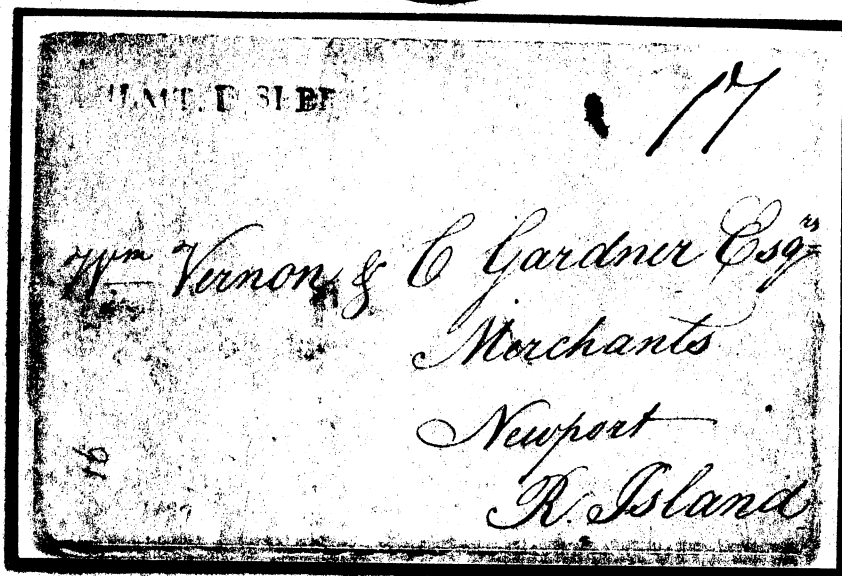 17
Wm Vernon & C Gardner Esqrs
Merchants
Newport
R. Island
16